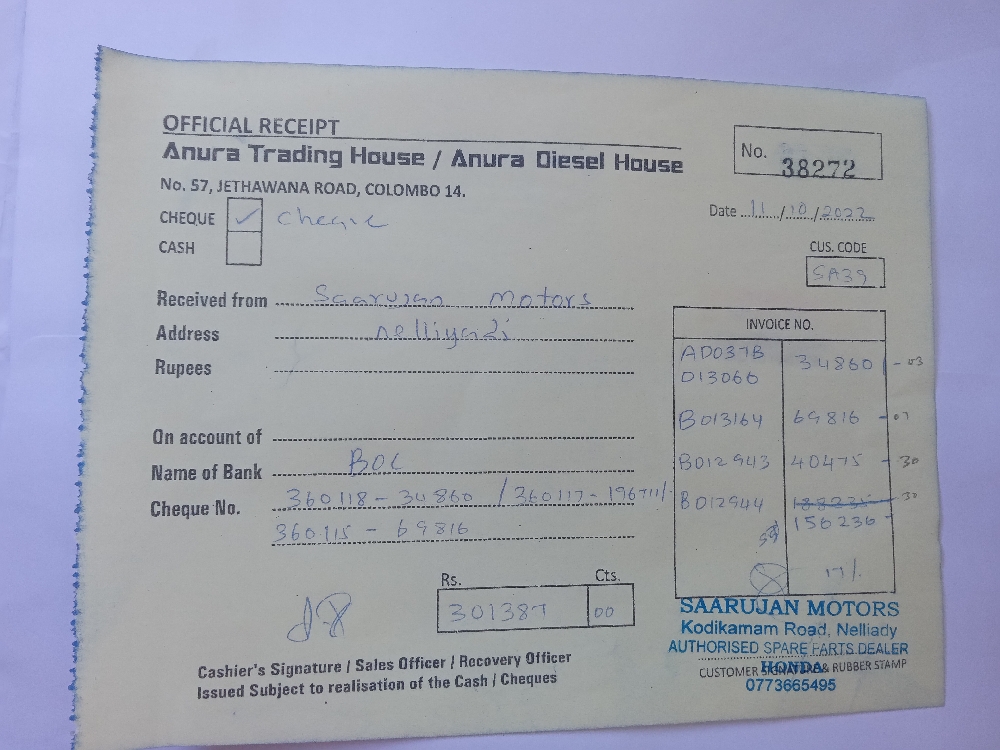 OFFICIAL RECEIPT
Anura Trading House / Anura Diesel House
No. 57, JETHAWANA ROAD, COLOMBO 14.
No. 38272
Date 11/10/2022
CHEQUE ✓ cheque
CASH
CUS. CODE
SA39
Received from Saarujan motors
Address nelliyadi
Rupees
On account of
Name of Bank BOC
Cheque No. 360118 - 34860 / 360117 - 196711/-
360115 - 69816
INVOICE NO.
AD037B
013066 34860 - 03
B013164 69816 - 07
B012943 40475 - 30
B012944 - 30
156236 -
17/.
Rs. Cts.
301387 00
Cashier's Signature / Sales Officer / Recovery Officer
Issued Subject to realisation of the Cash / Cheques
SAARUJAN MOTORS
Kodikamam Road, Nelliady
AUTHORISED SPARE PARTS DEALER
HONDA
CUSTOMER SIGNATURE & RUBBER STAMP
0773665495